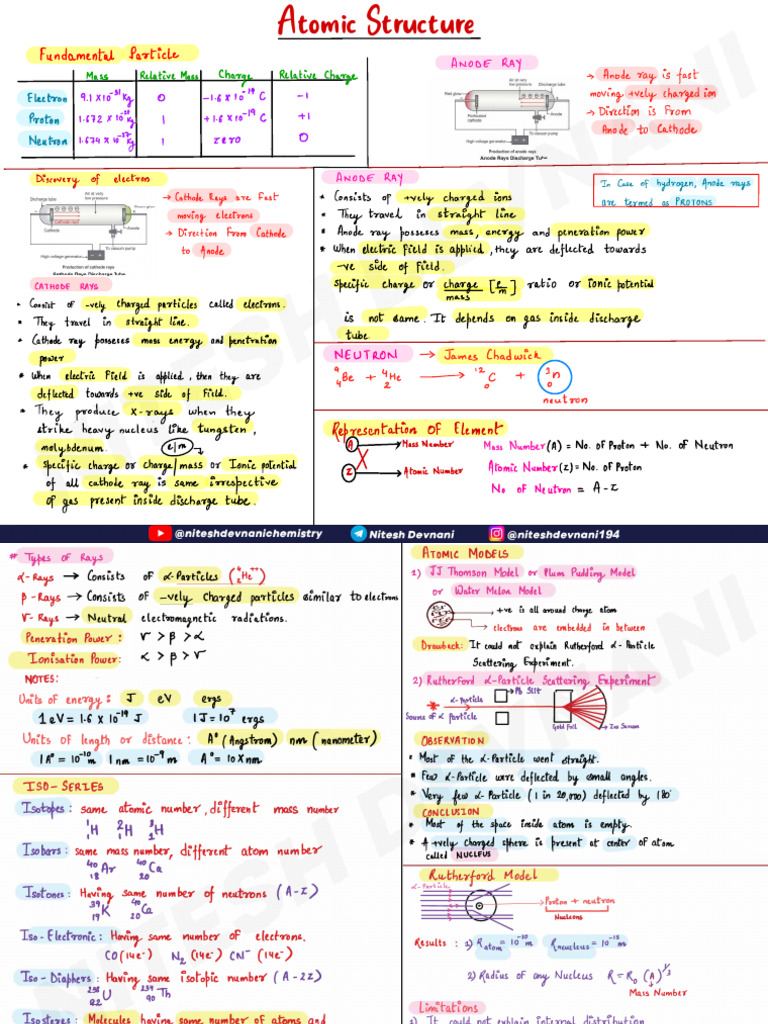 Atomic Structure
Fundamental Particle
Mass Relative Mass Charge Relative Charge
Electron 9.1 X 10⁻³¹ kg 0 -1.6 X 10⁻¹⁹ C -1
Proton 1.672 X 10 kg 1 +1.6 X 10⁻¹⁹ C +1
Neutron 1.674 X 10⁻²⁷ kg 1 zero 0
ANODE RAY
Air at very
low pressure
Discharge tube
Perforated
cathode
Anode
To vacuum pump
High voltage generator
Production of anode rays
Anode Rays Discharge Tube
→ Anode ray is fast
moving +vely charged ion
→ Direction is From
Anode to Cathode
Discovery of electron
Discharge tube
Air at very
low pressure
Cathode rays
Cathode
Anode
To vacuum pump
High voltage generator
Production of cathode rays
Cathode Rays Discharge Tube
→ Cathode Rays are Fast
moving electrons
→ Direction From Cathode
to Anode
CATHODE RAYS
• Consist of -vely charged particles called electrons.
• They travel in straight line.
• Cathode ray posseses mass energy and penetration
power
* When electric Field is applied, then they are
deflected towards +ve side of Field.
* They produce X-rays when they
strike heavy nucleus like tungsten,
molybdenum.
e/m
* Specific charge or charge/mass or Ionic potential
of all cathode ray is same irrespective
of gas present inside discharge tube.
ANODE RAY
* Consists of +vely charged ions
* They travel in straight line
* Anode ray posseses mass, energy and peneration power
* When electric field is applied, they are deflected towards
-ve side of field.
Specific charge or charge/mass [e/m] ratio or ionic potential
is not same. It depends on gas inside discharge
tube
In Case of hydrogen, Anode rays
are termed as PROTONS
NEUTRON → James Chadwick
⁹₄Be + ⁴₂He → ¹²C + ¹₀n
neutron
Representation OF Element
A → Mass Number
X
Z → Atomic Number
Mass Number(A) = No. of Proton + No. of Neutron
Atomic Number(Z) = No. of Proton
No of Neutron = A-Z
@niteshdevnanichemistry Nitesh Devnani @niteshdevnani194
# Types of Rays
α-Rays → Consists of α-Particles (⁴₂He⁺⁺)
β-Rays → Consists of -vely Charged particles similar to electrons
γ-Rays → Neutral electromagnetic radiations.
Peneration Power: γ > β > α
Ionisation Power: α > β > γ
NOTES:
Units of energy: J eV ergs
1 eV = 1.6 X 10⁻¹⁹ J 1J = 10⁷ ergs
Units of length or distance: A° (Angstrom) nm (nanometer)
1A° = 10⁻¹⁰ m 1nm = 10⁻⁹ m A° = 10 X nm
ISO-SERIES
Isotopes: same atomic number, different mass number
¹₁H ²₁H ³₁H
Isobars: same mass number, different atom number
⁴⁰₁₈Ar ⁴⁰₂₀Ca
Isotones: Having same number of neutrons (A-Z)
³⁹₁₉K ⁴⁰₂₀Ca
Iso-Electronic: Having same number of electrons.
CO(14e⁻) N₂(14e⁻) CN⁻(14e⁻)
Iso-Diaphers: Having same isotopic number (A-2Z)
U Th
Isosteres: Molecules having same number of atoms and
ATOMIC MODELS
1) JJ Thomson Model or Plum Pudding Model
or Water Melon Model
+ve is all around charge atom
electrons are embedded in between
Drawback: It could not explain Rutherford α-Particle
Scattering Experiment.
2) Rutherford α-Particle Scattering Experiment
α-particle
Pb Slit
Source of α particle
Gold Foil
Zns Screen
OBSERVATION
* Most of the α-Particle went straight.
* Few α-Particle were deflected by small angles.
* Very few α-Particle (1 in 20,000) deflected by 180°
CONCLUSION
* Most of the space inside atom is empty.
* A +vely charged sphere is present at center of atom
called NUCLEUS
Rutherford Model
α-Particle
Proton + neutron
Nucleons
Results: 1) R atom = 10⁻¹⁰ m R nucleus = 10⁻¹⁵ m
2) Radius of any Nucleus R = R₀ (A)^1/3
Mass Number
Limitations
1) It could not explain internal distribution
NITESH DEVNANI